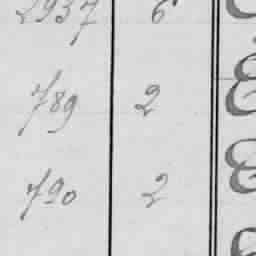 2937 6
789 2
790 2